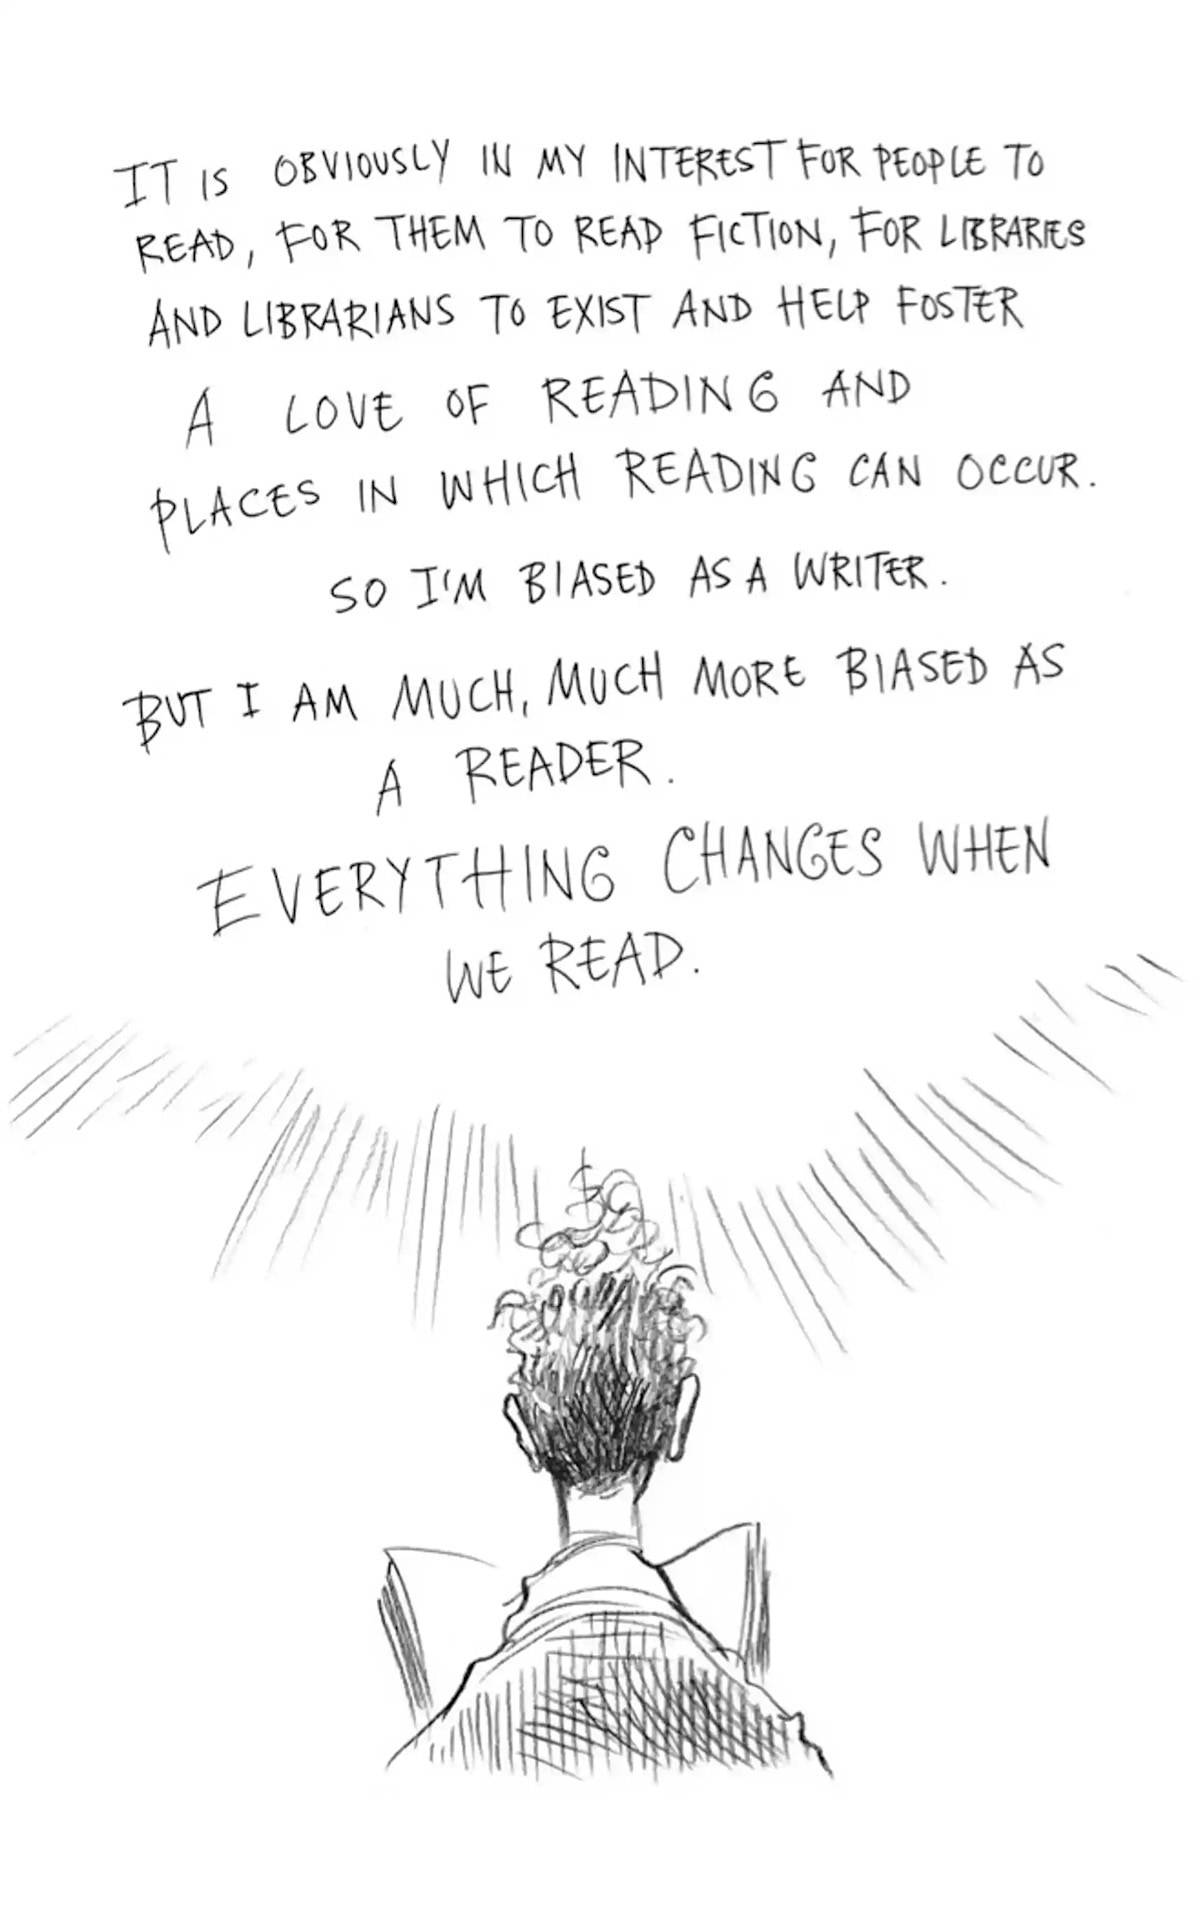 IT IS OBVIOUSLY IN MY INTEREST FOR PEOPLE TO
READ, FOR THEM TO READ FICTION, FOR LIBRARIES
AND LIBRARIANS TO EXIST AND HELP FOSTER
A LOVE OF READING AND
PLACES IN WHICH READING CAN OCCUR.
SO I'M BIASED AS A WRITER.
BUT I AM MUCH, MUCH MORE BIASED AS
A READER.
EVERYTHING CHANGES WHEN
WE READ.